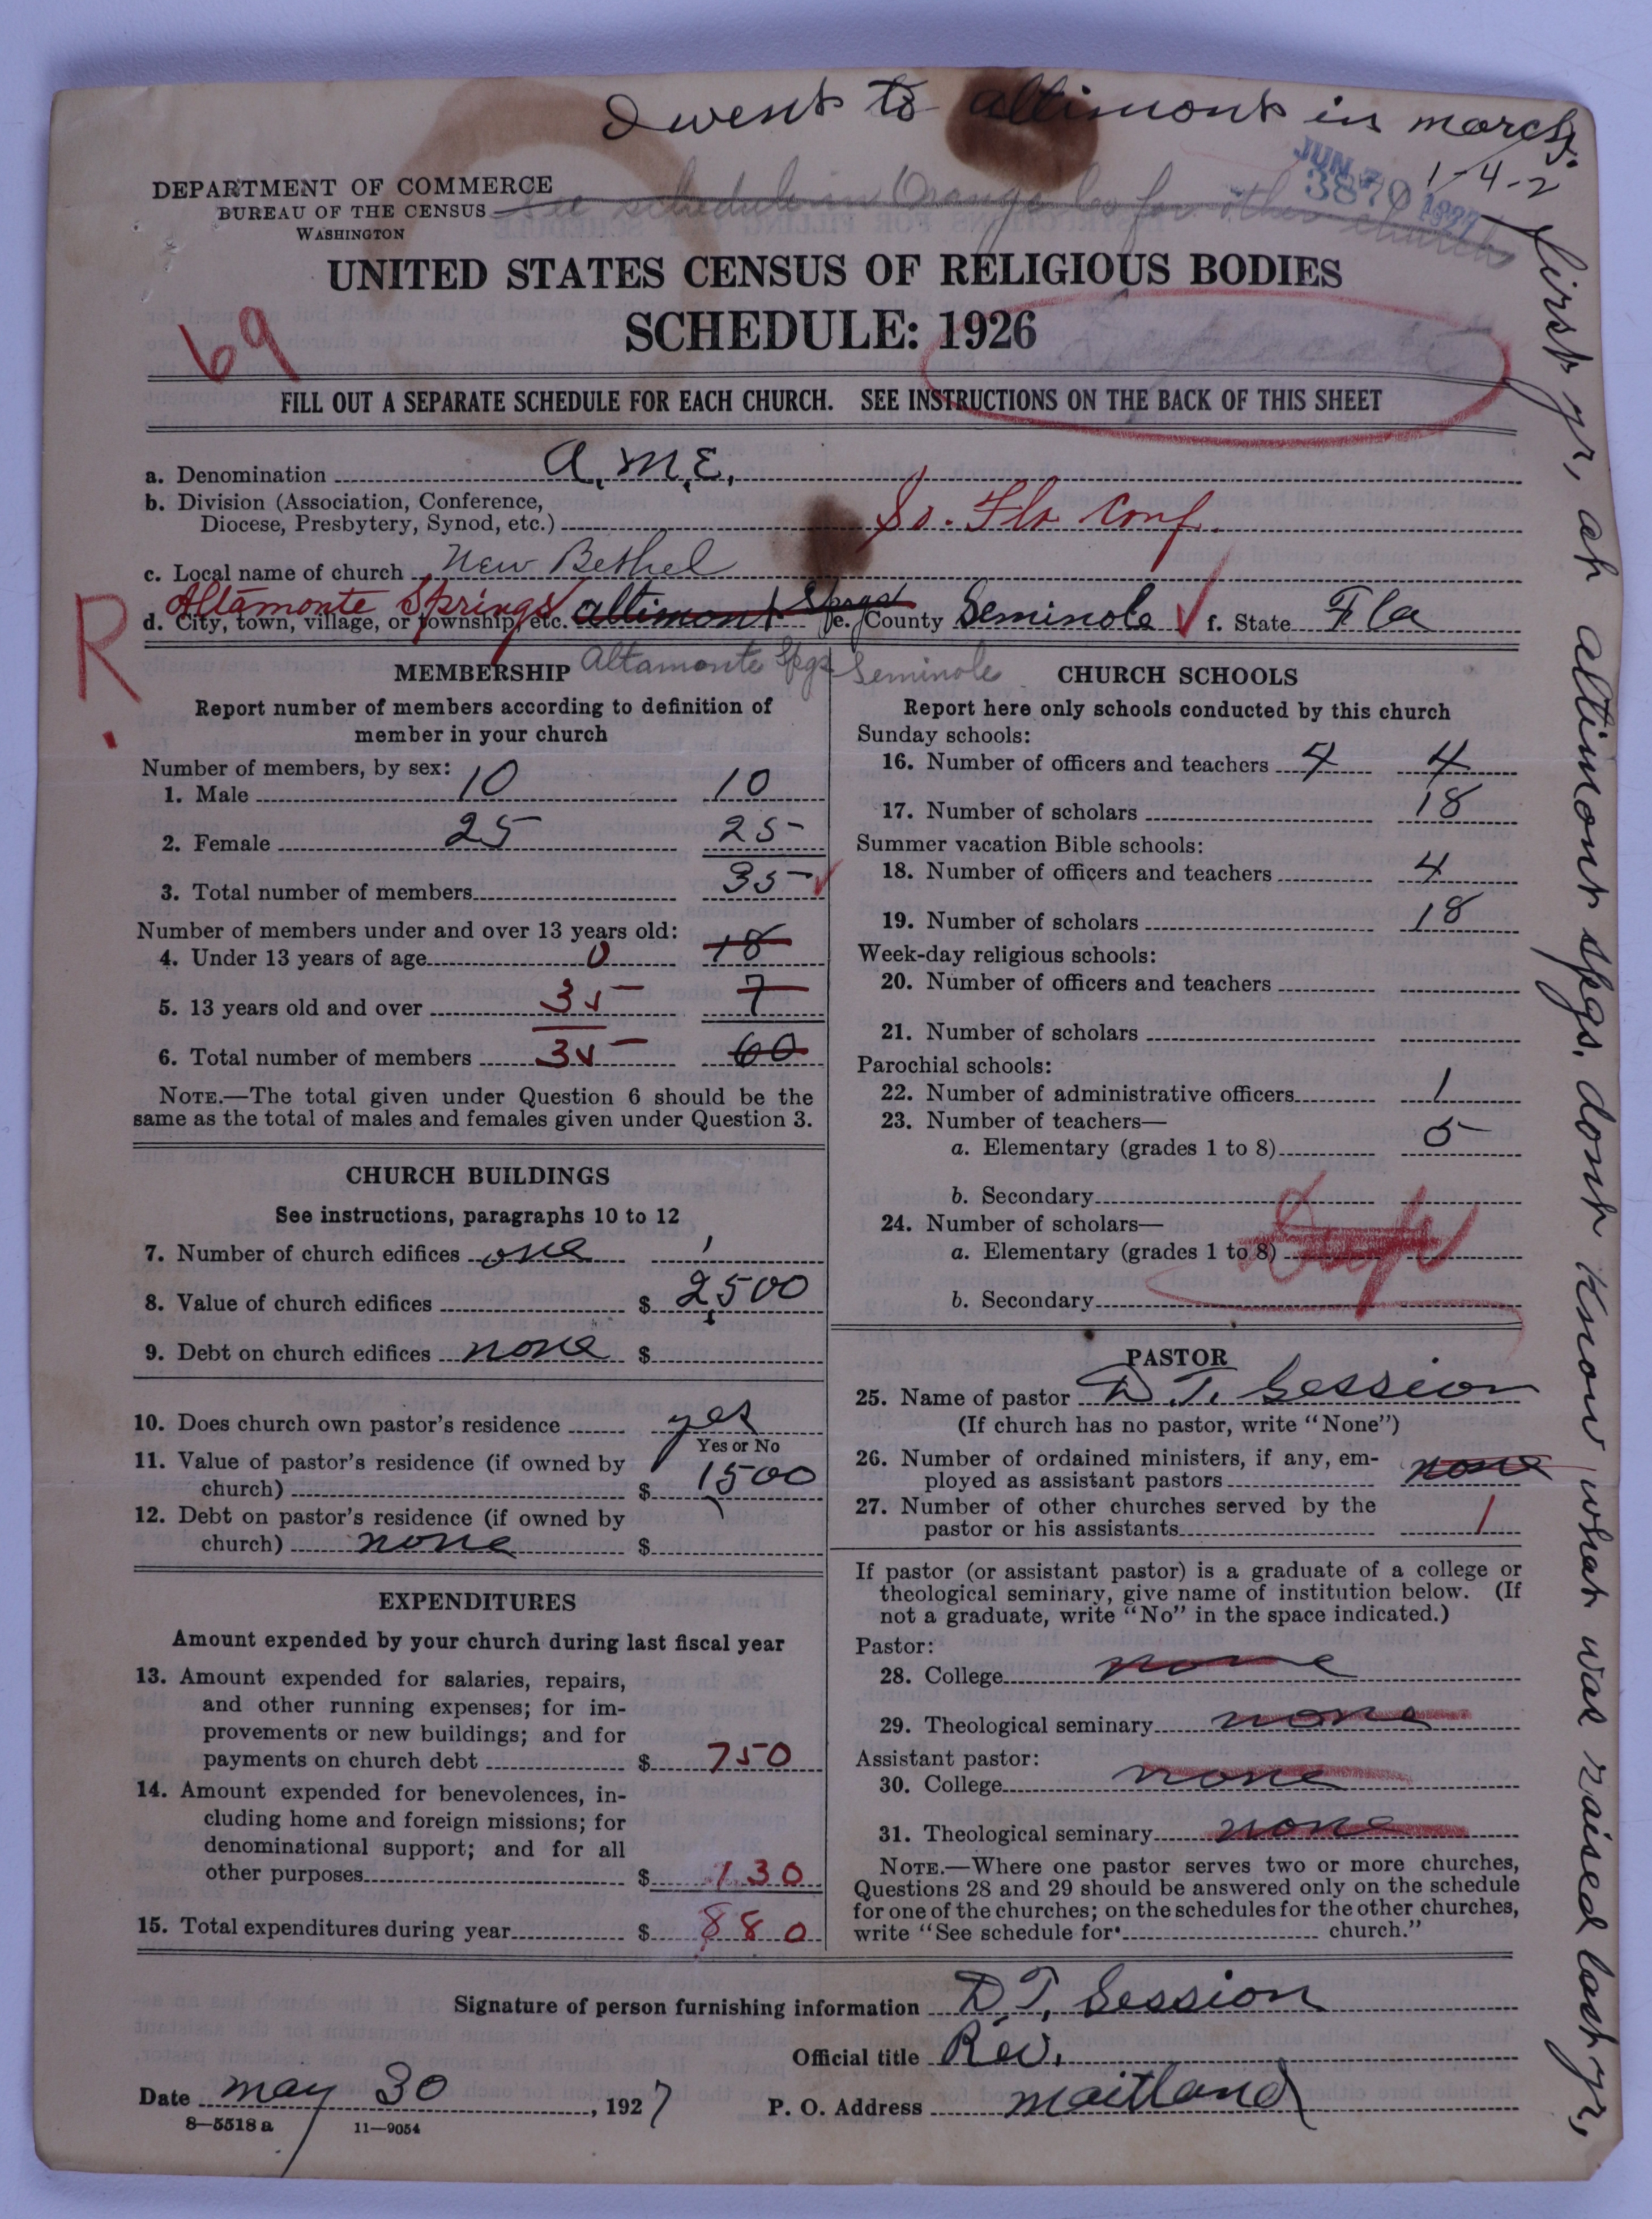 I went to altimont in march.
1-4-2
JUN 7 1927
3870
DEPARTMENT OF COMMERCE
BUREAU OF THE CENSUS
WASHINGTON
See schedule in Orange Co for other church
UNITED STATES CENSUS OF RELIGIOUS BODIES
SCHEDULE: 1926
69
FILL OUT A SEPARATE SCHEDULE FOR EACH CHURCH. SEE INSTRUCTIONS ON THE BACK OF THIS SHEET
a. Denomination A.M.E.
b. Division (Association, Conference,
Diocese, Presbytery, Synod, etc.) So. Fla Conf.
c. Local name of church New Bethel
Altamonte Springs
d. City, town, village, or township, etc. altimont Sprgs e. County Seminole f. State Fla
R.
Altamonte Spgs Seminole
MEMBERSHIP
Report number of members according to definition of
member in your church
Number of members, by sex:
1. Male 10 10
2. Female 25 25
3. Total number of members 35
Number of members under and over 13 years old:
4. Under 13 years of age 0 18
5. 13 years old and over 35 7
6. Total number of members 35 60
NOTE.—The total given under Question 6 should be the
same as the total of males and females given under Question 3.
CHURCH BUILDINGS
See instructions, paragraphs 10 to 12
7. Number of church edifices one 1
8. Value of church edifices $ 2,500
9. Debt on church edifices none $
10. Does church own pastor's residence yes
Yes or No
11. Value of pastor's residence (if owned by
church) $ 1,500
12. Debt on pastor's residence (if owned by
church) none $
EXPENDITURES
Amount expended by your church during last fiscal year
13. Amount expended for salaries, repairs,
and other running expenses; for im-
provements or new buildings; and for
payments on church debt $ 750
14. Amount expended for benevolences, in-
cluding home and foreign missions; for
denominational support; and for all
other purposes $ 130
15. Total expenditures during year $ 880
CHURCH SCHOOLS
Report here only schools conducted by this church
Sunday schools:
16. Number of officers and teachers 4 4
17. Number of scholars 18
Summer vacation Bible schools:
18. Number of officers and teachers 4
19. Number of scholars 18
Week-day religious schools:
20. Number of officers and teachers
21. Number of scholars
Parochial schools:
22. Number of administrative officers 1
23. Number of teachers—
a. Elementary (grades 1 to 8) 5
b. Secondary
24. Number of scholars—
a. Elementary (grades 1 to 8)
b. Secondary
PASTOR
25. Name of pastor D. T. Session
(If church has no pastor, write "None")
26. Number of ordained ministers, if any, em-
ployed as assistant pastors none
27. Number of other churches served by the
pastor or his assistants 1
If pastor (or assistant pastor) is a graduate of a college or
theological seminary, give name of institution below. (If
not a graduate, write "No" in the space indicated.)
Pastor:
28. College none
29. Theological seminary none
Assistant pastor:
30. College none
31. Theological seminary none
NOTE.—Where one pastor serves two or more churches,
Questions 28 and 29 should be answered only on the schedule
for one of the churches; on the schedules for the other churches,
write "See schedule for church."
Signature of person furnishing information D T, Session
Official title Rev.
Date may 30, 1927 P. O. Address maitland
8—5518 a 11—9054
first yr, at altimont spgs. dont know what was raised last yr,